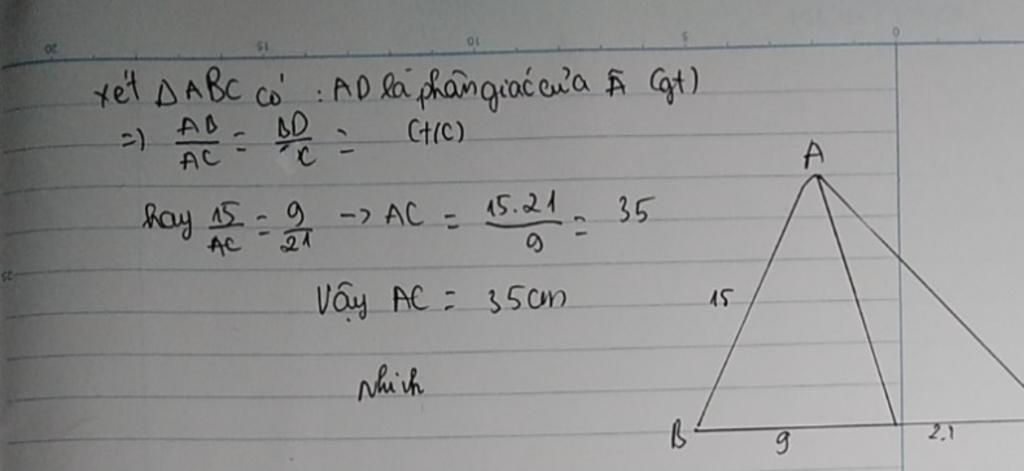 xét ΔABC có : AD là phân giác của Â (gt)
=) AB/AC = BD/C = (t/c)
hay 15/AC = 9/21 -> AC = 15.21/9 = 35
Vậy AC = 35cm
A
15
B 9 2.1
0 5 10 15 20